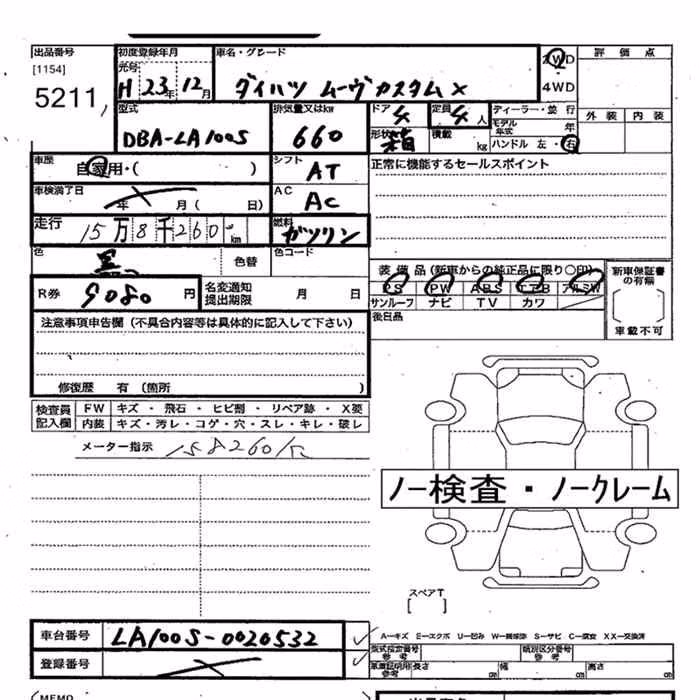 出品番号 初度登録年月 車名・グレード 2WD 評価点
[1154] 元号
5211 H 23年 12月 ダイハツ ムーヴカスタム X 4WD
型式 排気量又はkw ドア 4 定員 4人 ディーラー・並行 外装 内装
モデル年式 年
DBA-LA100S 660 形状 箱 積載 kg ハンドル 左・右
車歴 自家用・( ) シフト AT 正常に機能するセールスポイント
車検満了日 年 月 ( 日) AC AC
走行 15万8千260km 燃料 ガソリン
色 黒 色替 色コード
装備品(新車からの純正品に限り○印) 新車保証書の有無
R券 9080円 名変通知提出期限 月 日 PS PW ABS エアB アルミW
サンルーフ ナビ TV カワ
後日品
[ ]
車載不可
注意事項申告欄(不具合内容等は具体的に記入して下さい)
修復歴 有(箇所 )
検査員記入欄 FW キズ・飛石・ヒビ割・リペア跡・X要
内装 キズ・汚レ・コゲ・穴・スレ・キレ・破レ
メーター指示 158260
ノー検査・ノークレーム
スペアT
[ ]
車台番号 LA100S-0020532
A-キズ E-エクボ U-凹み W-補修跡 S-サビ C-腐食 XX-交換済
登録番号 型式指定番号 参考 類別区分番号 参考
車庫証明用参考 長さ cm 幅 cm 高さ cm
(MEMO